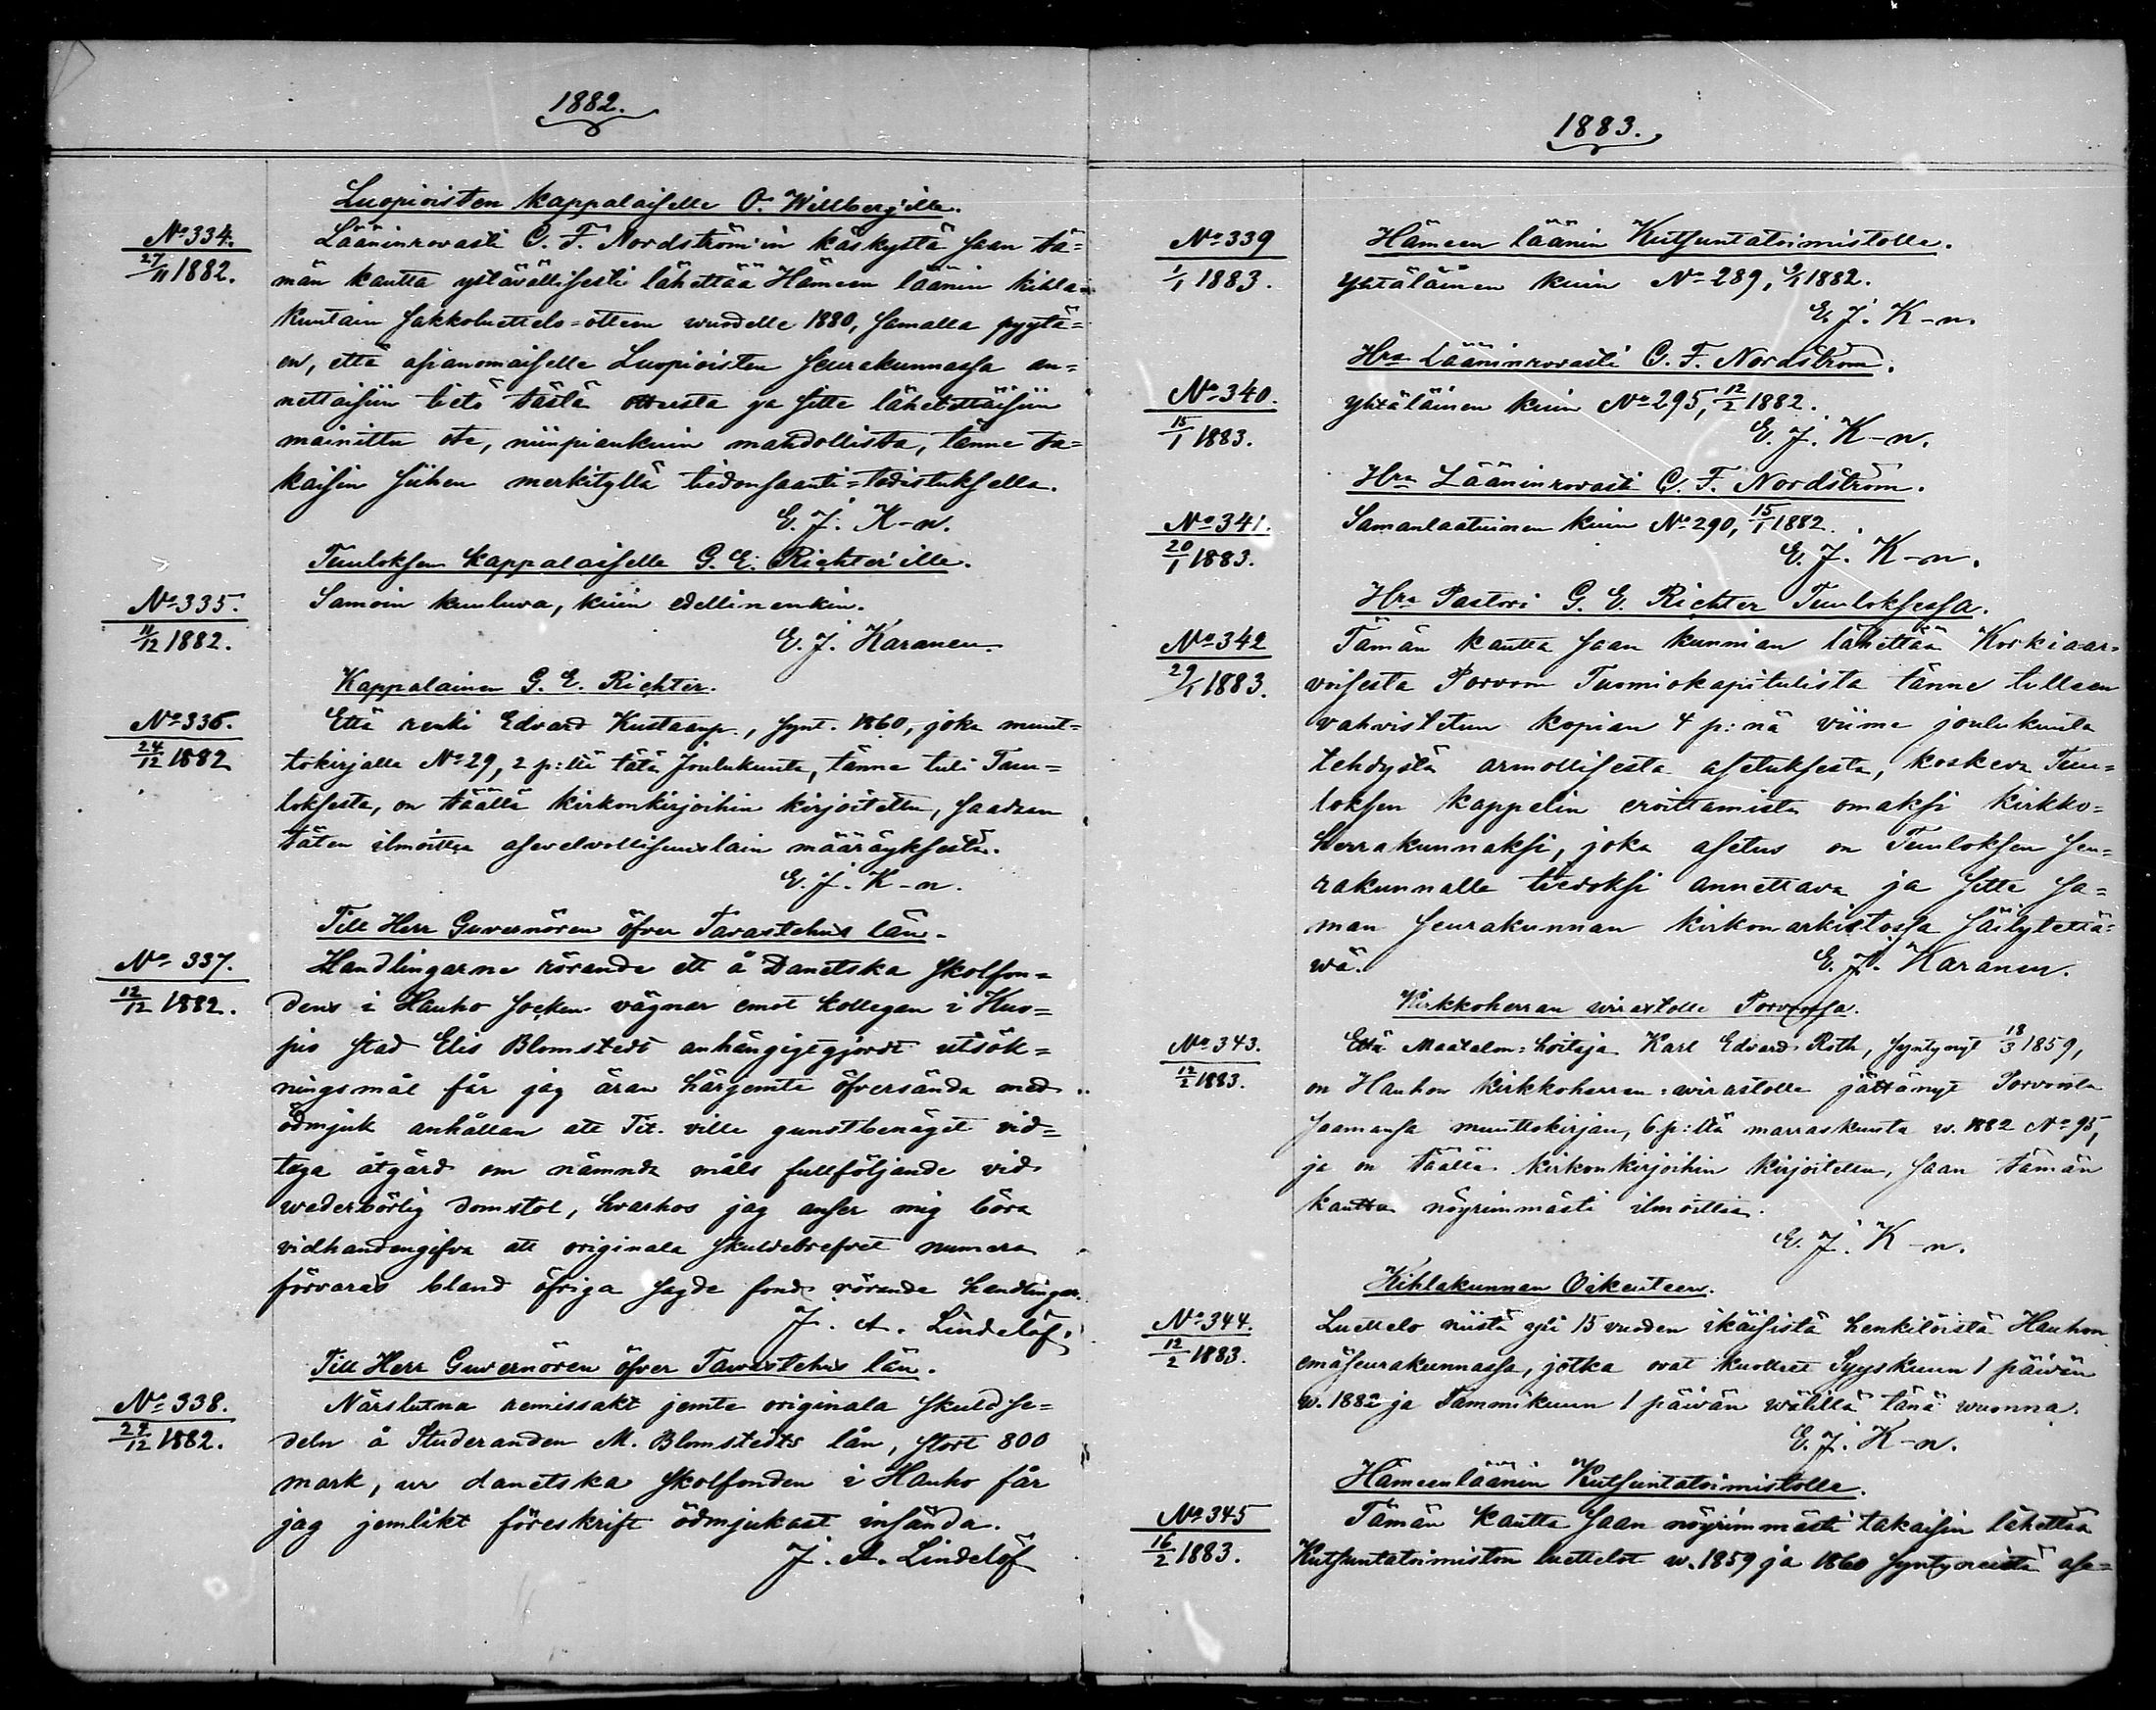 1882.
Luopioisten kappalaiselle O. Willbergille.
No 334.
27/11 1882.
Lääninrovasti C. F. Nordström'in käskystä saan tä=
män kautta ystävällisesti lähettää Hämeen läänin kihla=
kuntain sakkoluettelo=otteen wuodelle 1880, samalla pyytä=
en, että asianomaiselle Luopioisten seurakunnassa an=
nettaisiin tieto tästä otteesta ja sitte lähetettäisiin
mainittu ote, niinpiankuin mahdollista, tänne ta=
kaisin siihen merkityllä tiedonsaanti=todistuksella.
E. J. K-n.
Tuuloksen kappalaiselle G. E. Richter'ille.
No 335.
11/12 1882.
Samoin kuuluva, kuin edellinenkin.
E. J. Karanen.
Kappalainen G. E. Richter.
No 336.
24/12 1882
Että renki Edvard Kustaanp., synt. 1860, joka muut=
tokirjalla No 29, 2 p:ltä tätä Joulukuuta, tänne tuli Tuu=
loksesta, on täällä kirkonkirjoihin kirjoitettu, saadaan
täten ilmoittaa asevelvollisuuslain määräyksestä.
E. J. K-n.
Till Herr Guvernören öfver Tavastehus län.
No 337.
12/12 1882.
Handlingarne rörande ett å Danetska skolfon=
dens i Hauho socken vägnar emot kollegan i Kuo=
pio stad Elis Blomstedt anhängigtgjordt utsök=
ningsmål får jag äran härjemte öfversända med
ödmjuk anhållan att Tit. ville gunstbenäget vid=
taga åtgärd om nämnda måls fullföljande vid
wederbörlig domstol, hvarhos jag anser mig böra
vidhandengifva att originala skuldebrefvet numera
förvaras bland öfriga sagde fond rörande handlingar.
J. A. Lindelöf.
Till Herr Guvernören öfver Tavastehus län.
No 338.
27/12 1882.
Närslutna remissakt jemte originala skuldse=
deln å Studeranden M. Blomstedts lån, stort 800
mark, ur danetska skolfonden i Hauho får
jag jemlikt föreskrift ödmjukast insända.
J. A. Lindelöf
1883.
Hämeen läänin Kutsuntatoimistolle.
No 339
1/1 1883.
Yhtäläinen kuin No 289, 9/1 1882.
E. J. K-n.
Hra Lääninrovasti C. F. Nordström.
No 340.
15/1 1883.
Yhtäläinen kuin No 295, 12/2 1882.
E. J. K-n.
Hra Lääninrovasti C. F. Nordström.
No 341.
20/1 1883.
Samanlaatuinen kuin No 290, 15/1 1882.
E. J. K-n.
Hra Pastori G. E. Richter Tuuloksessa.
No 342
29/1 1883.
Tämän kautta saan kunnian lähettää Korkiaar=
voisesta Porvoon Tuomiokapitulista tänne tulleen
vahvistetun kopian 4 p:nä viime joulukuuta
tehdystä armollisesta asetuksesta, koskeva Tuu=
loksen kappelin eroittamista omaksi kirkko=
herrakunnaksi, joka asetus on Tuuloksen seu=
rakunnalle tiedoksi annettava ja sitte sa=
man seurakunnan kirkonarkistossa säilytettä=
wä.
E. J. Karanen.
Kirkkoherran wirastolle Porvoossa.
No 343.
12/2 1883.
Että Maatalon=hoitaja Karl Edvard Roth, syntynyt 18/3 1859,
on Hauhon kirkkoherran=wirastolle jättänyt Porvoosta
saamansa muuttokirjan, 6 p:ltä marraskuuta w. 1882 No 95,
ja on täällä kirkonkirjoihin kirjoitettu, saan tämän
kautta nöyrimmästi ilmoittaa.
E. J. K-n.
Kihlakunnan Oikeuteen.
No 344.
12/2 1883.
Luettelo niistä yli 15 vuoden ikäisistä henkilöistä Hauhon
emäseurakunnassa, jotka ovat kuolleet Syyskuun 1 päivän
w. 1882 ja Tammikuun 1 päivän wälillä tänä wuonna.
E. J. K-n.
Hämeenläänin Kutsuntatoimistolle.
No 345
16/2 1883.
Tämän kautta saan nöyrimmästi takaisin lähettää
Kutsuntatoimiston luettelot w. 1859 ja 1860 syntyneistä ase=